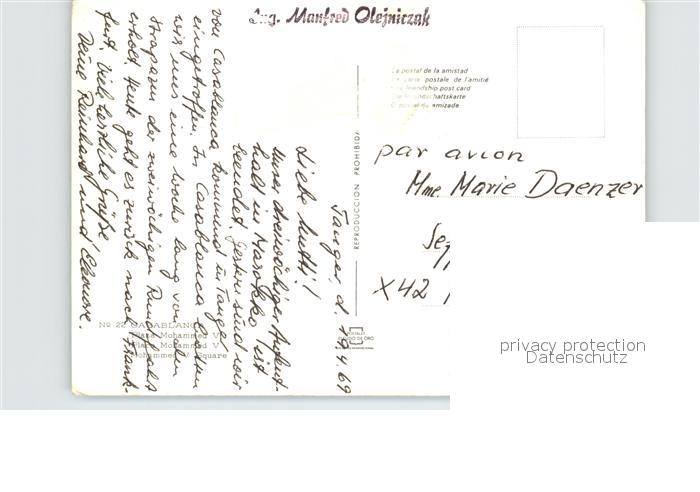 Ing. Manfred Olejniczak
La postal de la amistad
La carte postale de l'amitié
The friendship post card
Die Freundschaftskarte
O postal da amizade
REPRODUCCION PROHIBIDA
par avion
Mme. Marie Daenzer
X42
Tanger, d. 19.4.69
Liebe Mutti!
Unser dreiwöchiger Aufent-
halt in Marokko ist
beendet. Gestern sind wir
von Casablanca kommend in Tanger
eingetroffen. In Casablanca haben
wir uns eine Woche lang von den
Strapazen der zweiwöchigen Rundfahrt
erholt. Heute geht es zurück nach Frank-
furt. Viele herzliche Grüße
Deine Reinhard und
Nº 22 CASABLANCA
Place Mohammed V
Plaza Mohamed V
Mohammed V Square
privacy protection
Datenschutz